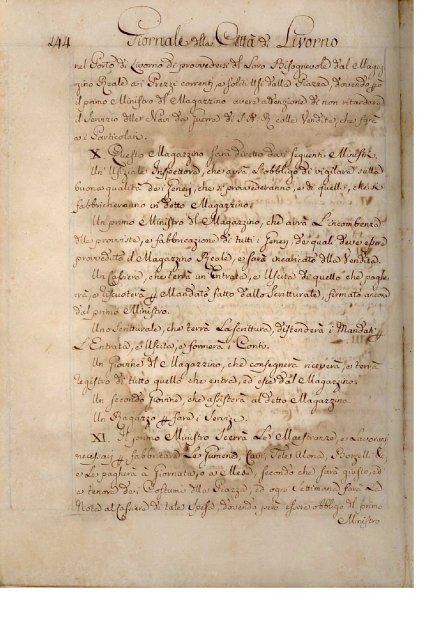 244 Giornale della Città di Livorno
nel Porto di Livorno di provvedersi del Loro Bisognevole dal Magaz
zino Reale a i Prezzi correnti, e soliti Usi dalla Piazza, dovendo pò
il primo Ministro del Magazzino avere attenzione di non ritardare
il Servizio delle Navi da Guerra di S. A. R. colle Vendite, che farà
a i Particolari.
X. Questo Magazzino sarà diretto da i seguenti Ministri.
Un' Uffiziale Inspettore, che avrà l'obbligo di vigilare sulla
buona qualità de i Generi, che si provvederanno, e di quelli, che si
fabbricheranno in detto Magazzino.
Un primo Ministro del Magazzino, che avrà L'incombenza
delle provviste, e fabbricazione di tutti i Generi, de quali deve essere
provveduto il Magazzino Reale, e sarà incaricato della Vendita.
Un Cassiere, che terrà un' Entrata, e Uscita di quello che paghe
rà, e riscuoterà p Mandato fatto dallo Scritturale, firmato ancora
dal primo Ministro.
Uno Scritturale, che terrà La Scrittura, distenderà i Mandati p
L'Entrata, e Uscita, e formerà i Conti.
Un Giovine del Magazzino, che consegnerà riceverà, e terrà
registro di tutto quello che entra, ed esce dal Magazzino.
Un secondo Giovine, che assisterà al detto Magazzino
Un Ragazzo p fare i Servizi.
XI. Il primo Ministro Scerrà Le Maestranze, e Lavoranti
necessarj p fabbricare Le Sumenta, Cavi, Tele Alona, Bozzelli &c
e Le pagherà a Giornata, o a Mese, secondo che sarà giusto, ed
a tenore de i Costumi della Piazza, ed ogni Settimana farà La
Nota al Cassiere di tale Spesa, dovendo però essere obbligo del primo
Ministro